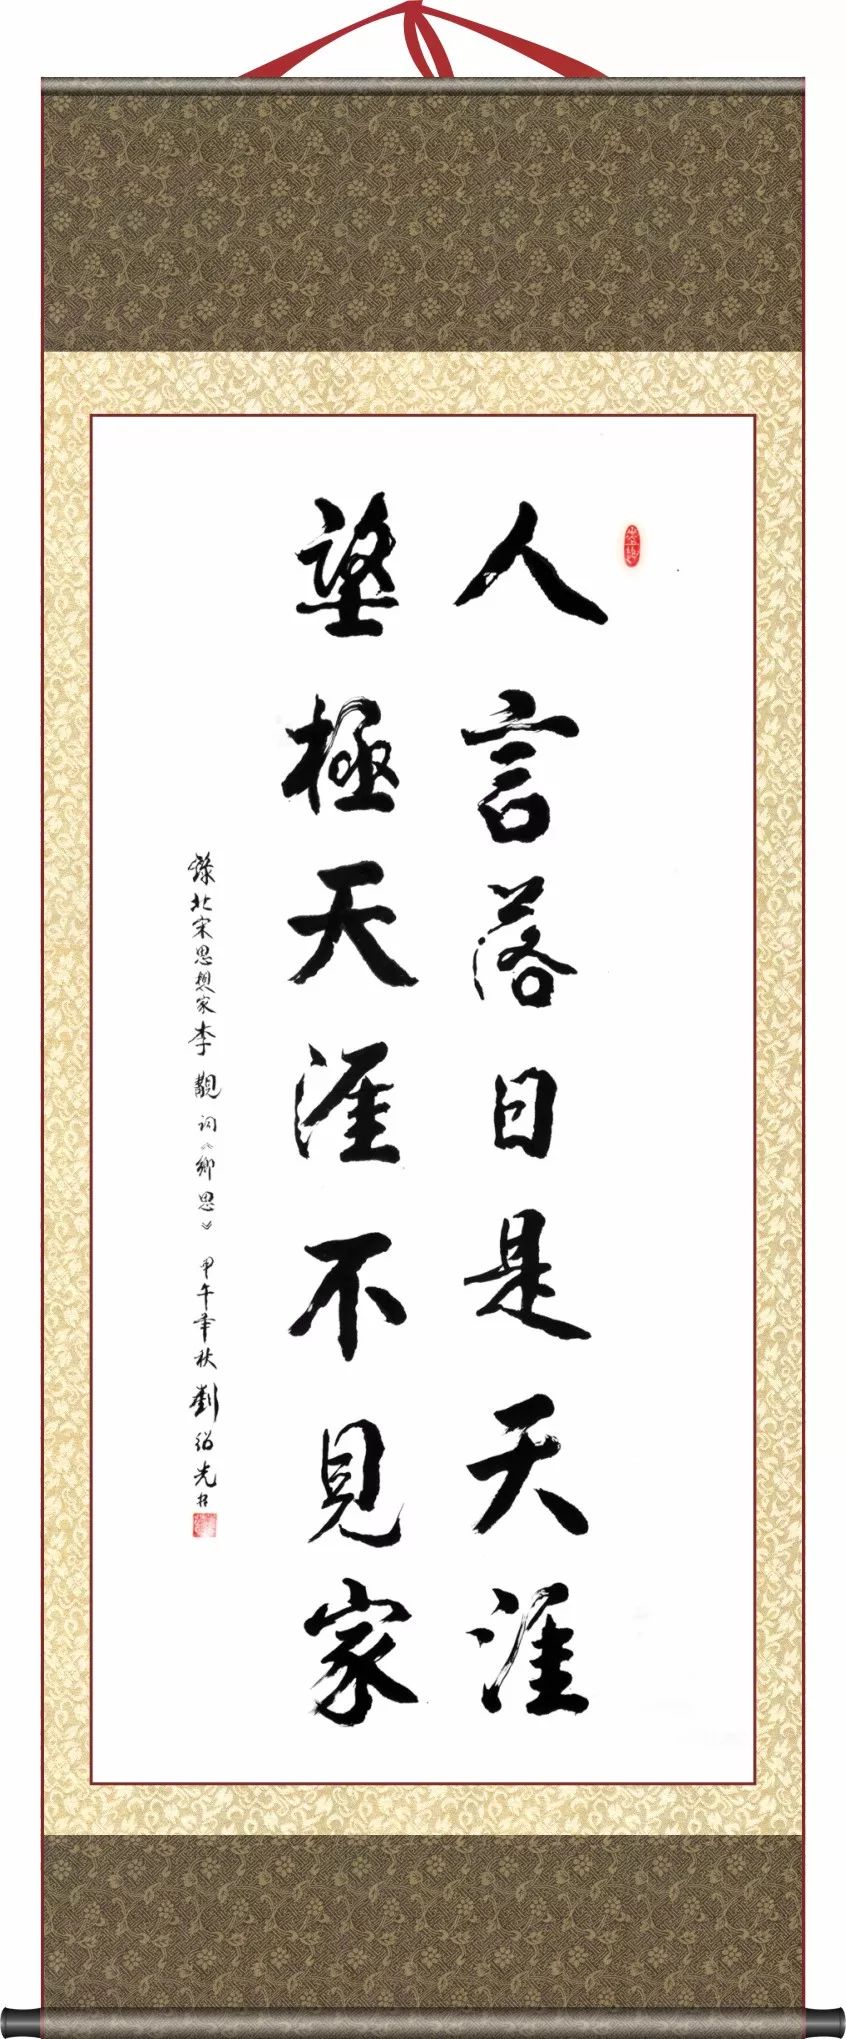 人言落日是天涯
望極天涯不見家
錄北宋思想家李覯詞《鄉思》 甲午年秋 劉紹光書